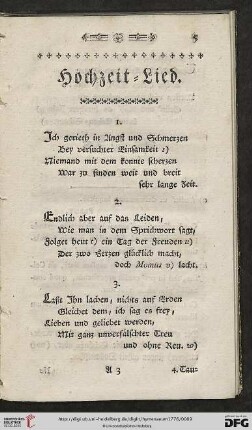 5
Hochzeit-Lied.
1.
Ich gerieth in Angst und Schmerzen
Bey versuchter Einsamkeit s)
Niemand mit dem konnte scherzen
War zu finden weit und breit
sehr lange Zeit.
2.
Endlich aber auf das Leiden,
Wie man in dem Sprichwort sagt,
Folget heut t) ein Tag der Freuden u)
Der zwo Herzen glücklich macht,
doch Momus v) lacht.
3.
Laßt Ihn lachen, nichts auf Erden
Gleichet dem, ich sag es frey,
Lieben und geliebet werden,
Mit ganz unverfälschter Treu
und ohne Reu. w)
A 3
4. Tau-